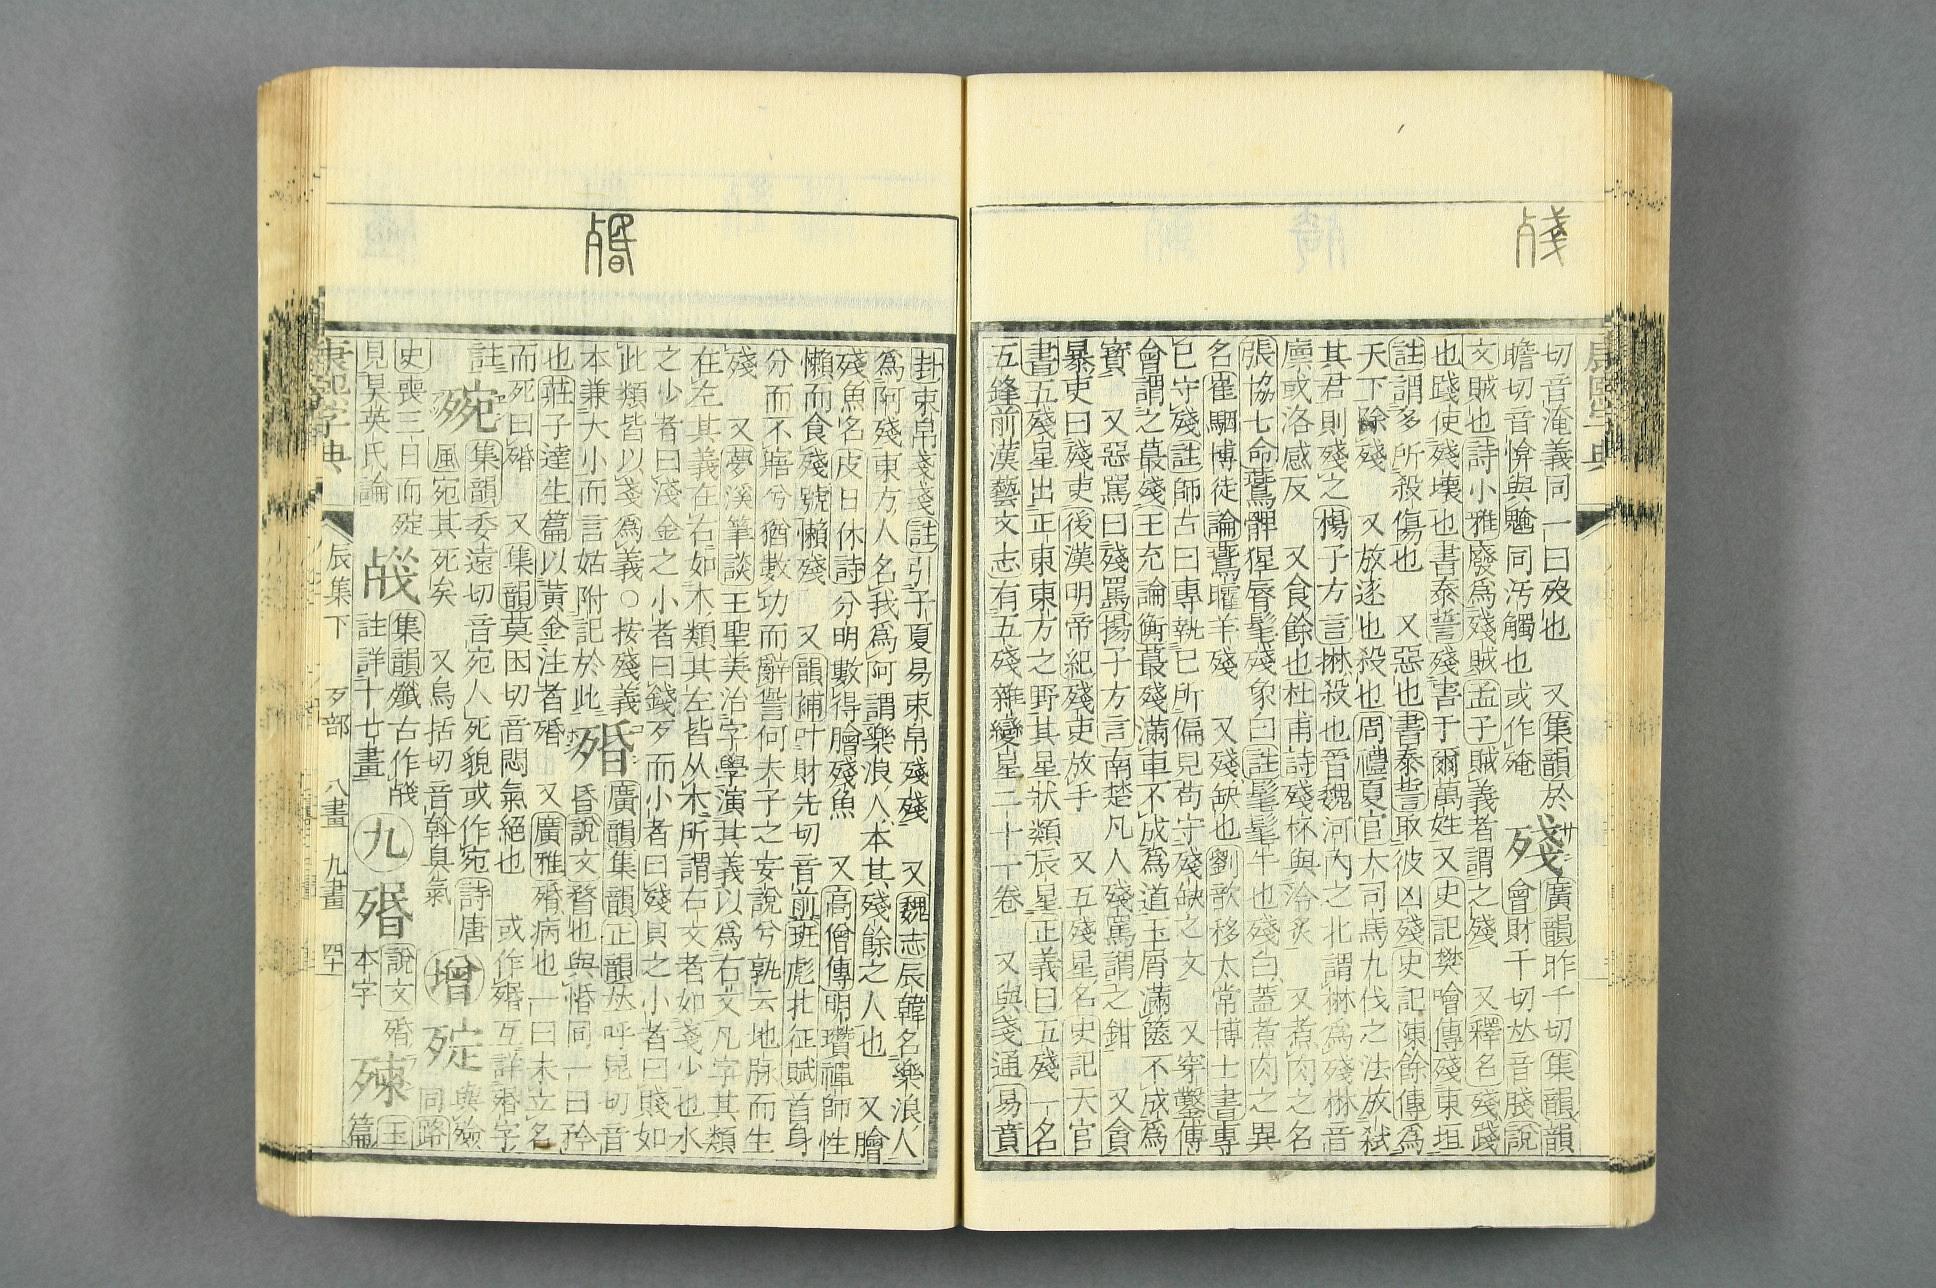 切音淹義同一曰歿也　又集韻於
瞻切音𢛯與䶲同汚觸也或作殗
殘
廣韻昨千切集韻韻
會財千切𠀤音牋說
文賊也詩小雅廢爲殘賊孟子賊義者謂之殘　又釋名殘踐
也踐使殘壞也書泰誓殘害于爾萬姓又史記樊噲傳殘東垣
註謂多所殺傷也　又惡也書泰誓取彼凶殘史記陳餘傳爲
天下除殘　又放逐也殺也周禮夏官大司馬九伐之法放弑
其君則殘之揚子方言㨆殺也晉魏河內之北謂㨆爲殘㨆音
廩或洛感反　又食餘也杜甫詩殘杯與冷炙　又煮肉之名
張協七命鷰髀猩脣髦殘象白註髦髦牛也殘白蓋煮肉之異
名崔駰博徒論鷰臛羊殘　又殘缺也劉歆移太常博士書專
已守殘註師古曰專執已所偏見苟守殘缺之文　又穿鑿傅
會謂之蕞殘王充論衡蕞殘滿車不成爲道玉屑滿篋不成爲
寶　又惡罵曰殘罵揚子方言南楚凡人殘罵謂之鉗　又貪
暴吏曰殘吏後漢明帝紀殘吏放手　又五殘星名史記天官
書五殘星出正東東方之野其星狀類辰星正義曰五殘一名
五鋒前漢藝文志有五殘雜變星二十一卷　又與戔通易賁
卦束帛戔戔註引子夏易束帛殘殘　又魏志辰韓名樂浪人
爲阿殘東方人名我爲阿謂樂浪人本其殘餘之人也　又膾
殘魚名皮日休詩分明數得膾殘魚　又高僧傳明瓚禪師性
懶而食殘號懶殘　又韻補叶財先切音前班彪北征賦首身
分而不寤兮猶數功而辭諐何夫子之妄說兮孰云地脈而生
殘　又夢溪筆談王聖美治字學演其義以爲右文凡字其類
在左其義在右如木類其左皆从木所謂右文者如戔少也水
之少者曰淺金之小者曰錢歹而小者曰殘貝之小者曰賤如
此類皆以戔爲義○按殘義
本兼大小而言姑附記於此
殙
廣韻集韻正韻𠀤呼昆切音
昏說文瞀也與惛同一曰矜
也莊子達生篇以黃金注者殙　又廣雅殙病也一曰未立名
而死曰殙　又集韻莫困切音悶氣絕也　或作𣩄互詳㛰字
註
㱧
集韻委遠切音宛人死貌或作宛詩唐
風宛其死矣　又烏括切音斡臭氣
增
𣨛
與殮
同路
史喪三日而𣨛
見昊英氏論
𣧻
集韻殲古作𣧻
註詳十七畫
九
𣩄
說文殙
本字
𣨙
玉
篇
康熙字典
辰集下　歹部　八畫　九畫　四十
康熙字典